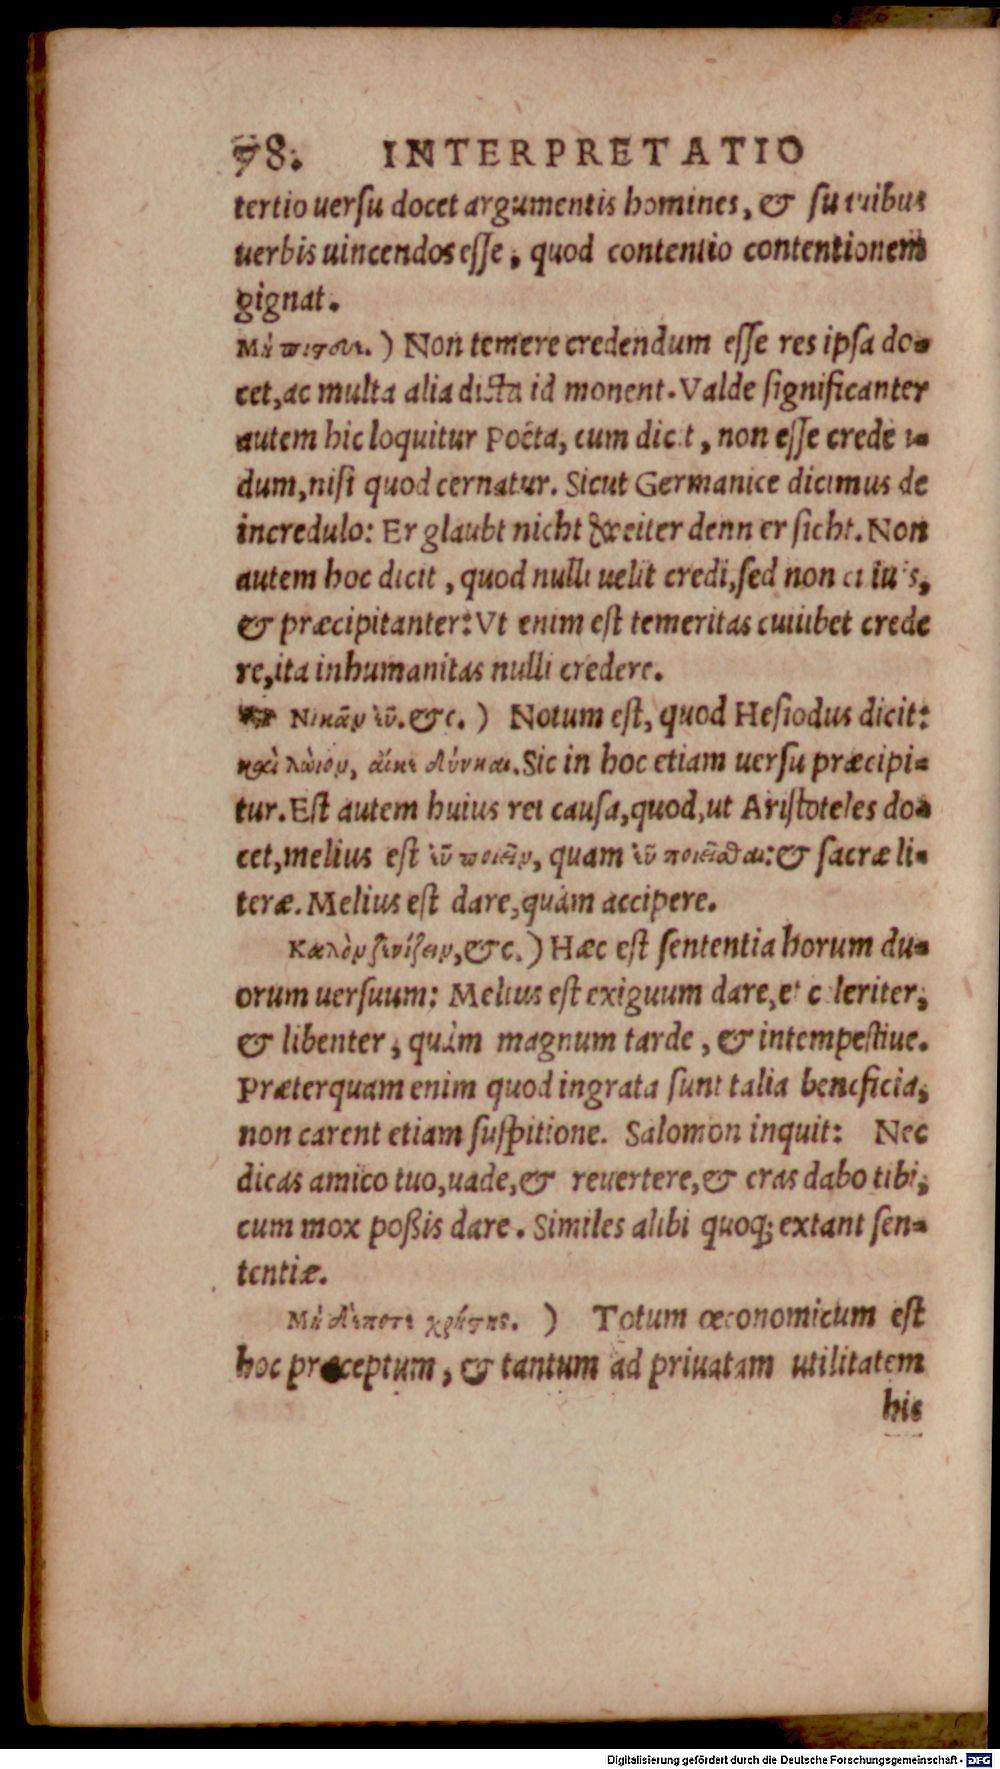 78. INTERPRETATIO
tertio uersu docet argumentis homines, & suauibus
uerbis uincendos esse, quod contentio contentionem
gignat.
Μὴ πιστ. ) Non temere credendum esse res ipsa do-
cet, ac multa alia dicta id monent. Valde significanter
autem hic loquitur Poëta, cum dicit, non esse creden-
dum, nisi quod cernatur. Sicut Germanice dicimus de
incredulo: Er glaubt nicht weiter denn er sicht. Non
autem hoc dicit, quod nulli uelit credi, sed non
& præcipitanter: Vt enim est temeritas cuilibet crede
re, ita inhumanitas nulli credere.
Νικᾶν εὖ. &c. ) Notum est, quod Hesiodus dicit:
καὶ λώιον, αἴκε δύνηαι. Sic in hoc etiam uersu præcipi-
tur. Est autem huius rei causa, quod, ut Aristoteles do-
cet, melius est εὖ ποιεῖν, quam εὖ ποιεῖσθαι: & sacræ li-
teræ. Melius est dare, quàm accipere.
Καλὸν ξενίζειν, &c. ) Hæc est sententia horum du-
orum uersuum: Melius est exiguum dare, et celeriter,
& libenter, quàm magnum tarde, & intempestiue.
Præterquam enim quod ingrata sunt talia beneficia,
non carent etiam suspitione. Salomon inquit: Nec
dicas amico tuo, uade, & reuertere, & cras dabo tibi,
cum mox poßis dare. Similes alibi quoq; extant sen-
tentiæ.
Μὴ δέποτε χρήστης. ) Totum œconomicum est
hoc præceptum, & tantum ad priuatam utilitatem
his
Digitalisierung gefördert durch die Deutsche Forschungsgemeinschaft - DFG